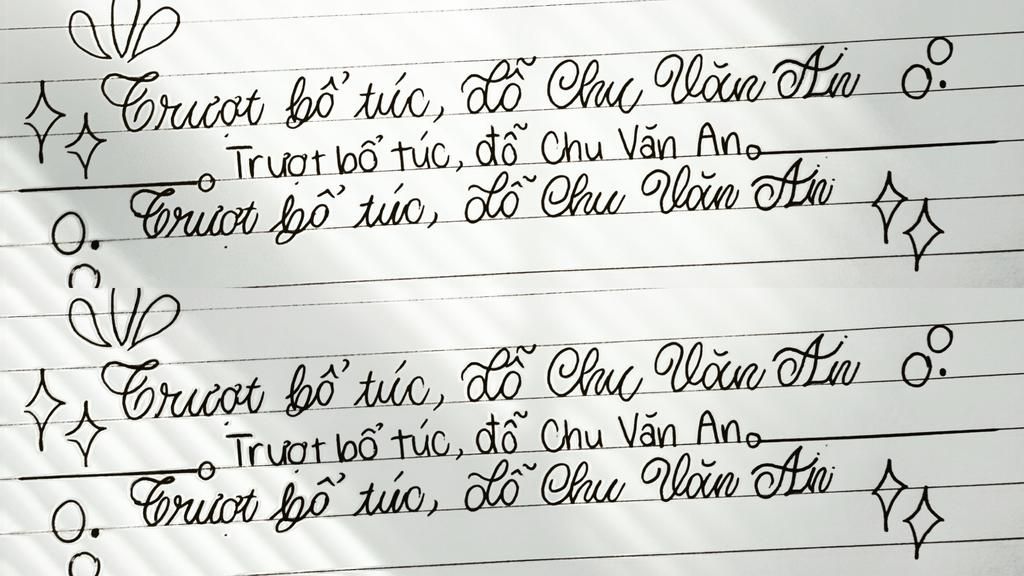 Trượt bổ túc, đỗ Chu Văn An
Trượt bổ túc, đỗ Chu Văn An
Trượt bổ túc, đỗ Chu Văn An
Trượt bổ túc, đỗ Chu Văn An
Trượt bổ túc, đỗ Chu Văn An
Trượt bổ túc, đỗ Chu Văn An